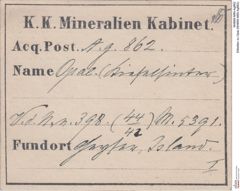 K. K. Mineralien Kabinet.
Acq. Post. A. g. 862.
Name Opal (Kieselsinter)
398. (44/42) M. 5391.
Fundort Geyser, Island.
I